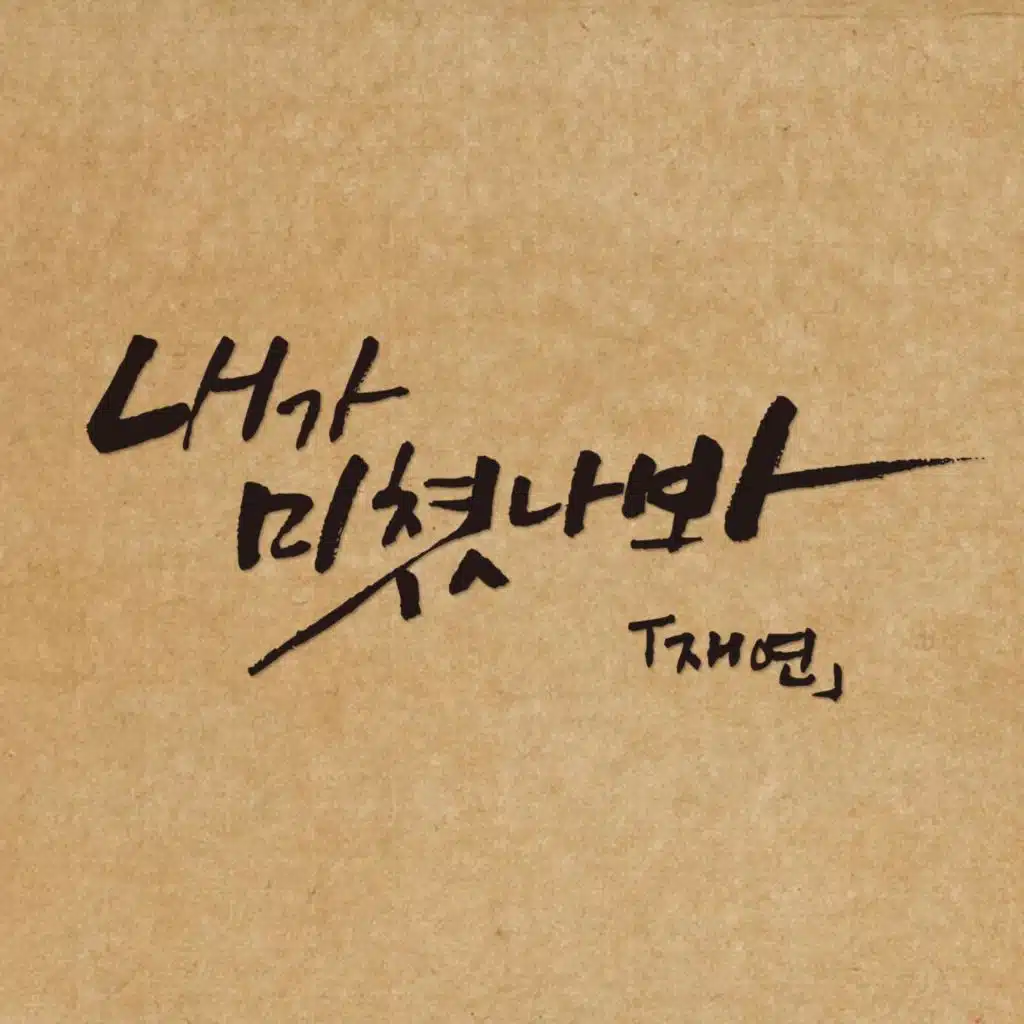 내가
미쳤나봐
「재연」